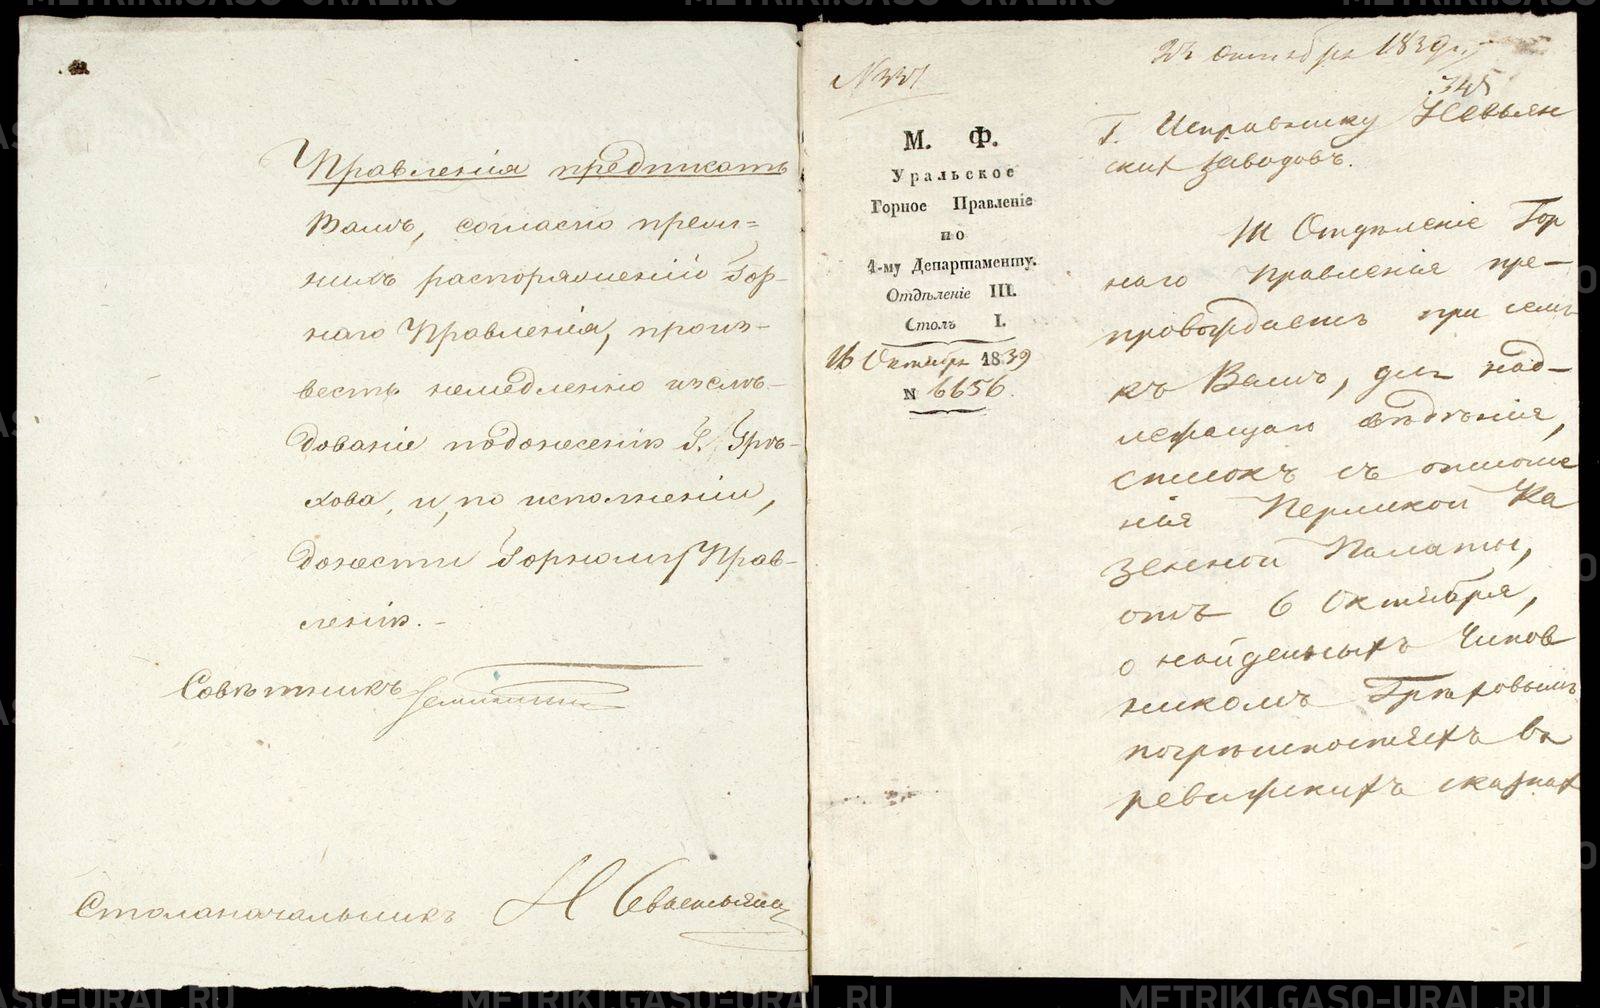 Управленія предписать
Вамъ, согласно преж=
нихъ распоряженій Гор-
наго Правленія, произ-
весть немедленно изслѣ-
дованіе по донесенію Г. Грѣ-
хова, и, по исполненіи,
донести Горному Прав-
ленію.-
Совѣтникъ
Столоначальникъ Н Севастьянов
23 октября 1839 г.
N 331
345
М. Ф.
Уральское
Горное Правленіе
по
1-му Департаменту.
Отдѣленіе III.
Столъ I.
16 Октября 1839
N 6656.
Г. Исправнику Невьян
скихъ заводовъ.
III Отдѣленіе Гор
наго Правленія пре-
провождаетъ при семъ
къ Вамъ, для над-
лежащаго свѣдѣнія,
списокъ съ отноше
нія Пермской Ка
зенной Палаты,
отъ 6 Октября,
о найденныхъ Чинов
никомъ Грѣховымъ
погрѣшностяхъ въ
ревижскихъ сказках
METRIKI.GASO-URAL.RU